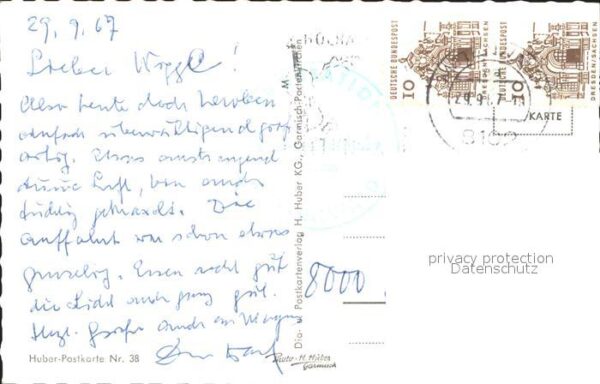 29.9.67
Lieber Wiggl!
Also heute doch heroben
einfach überwältigend groß
artig. Etwas anstrengend
dünne Luft, bin auch
tüchtig gehatscht. Die
Auffahrt war schon etwas
gruselig. Essen recht gut
die Sicht auch ganz gut.
Herzl. Grüße auch an
Huber-Postkarte Nr. 38
Dia- u. Postkartenverlag H. Huber KG., Garmisch-Partenkirchen
Photo-H. Huber
Garmisch
8000
DEUTSCHE BUNDESPOST
10
DRESDEN/SACHSEN
DEUTSCHE BUNDESPOST
10
DRESDEN/SACHSEN
29.9.67
KARTE
privacy protection
Datenschutz